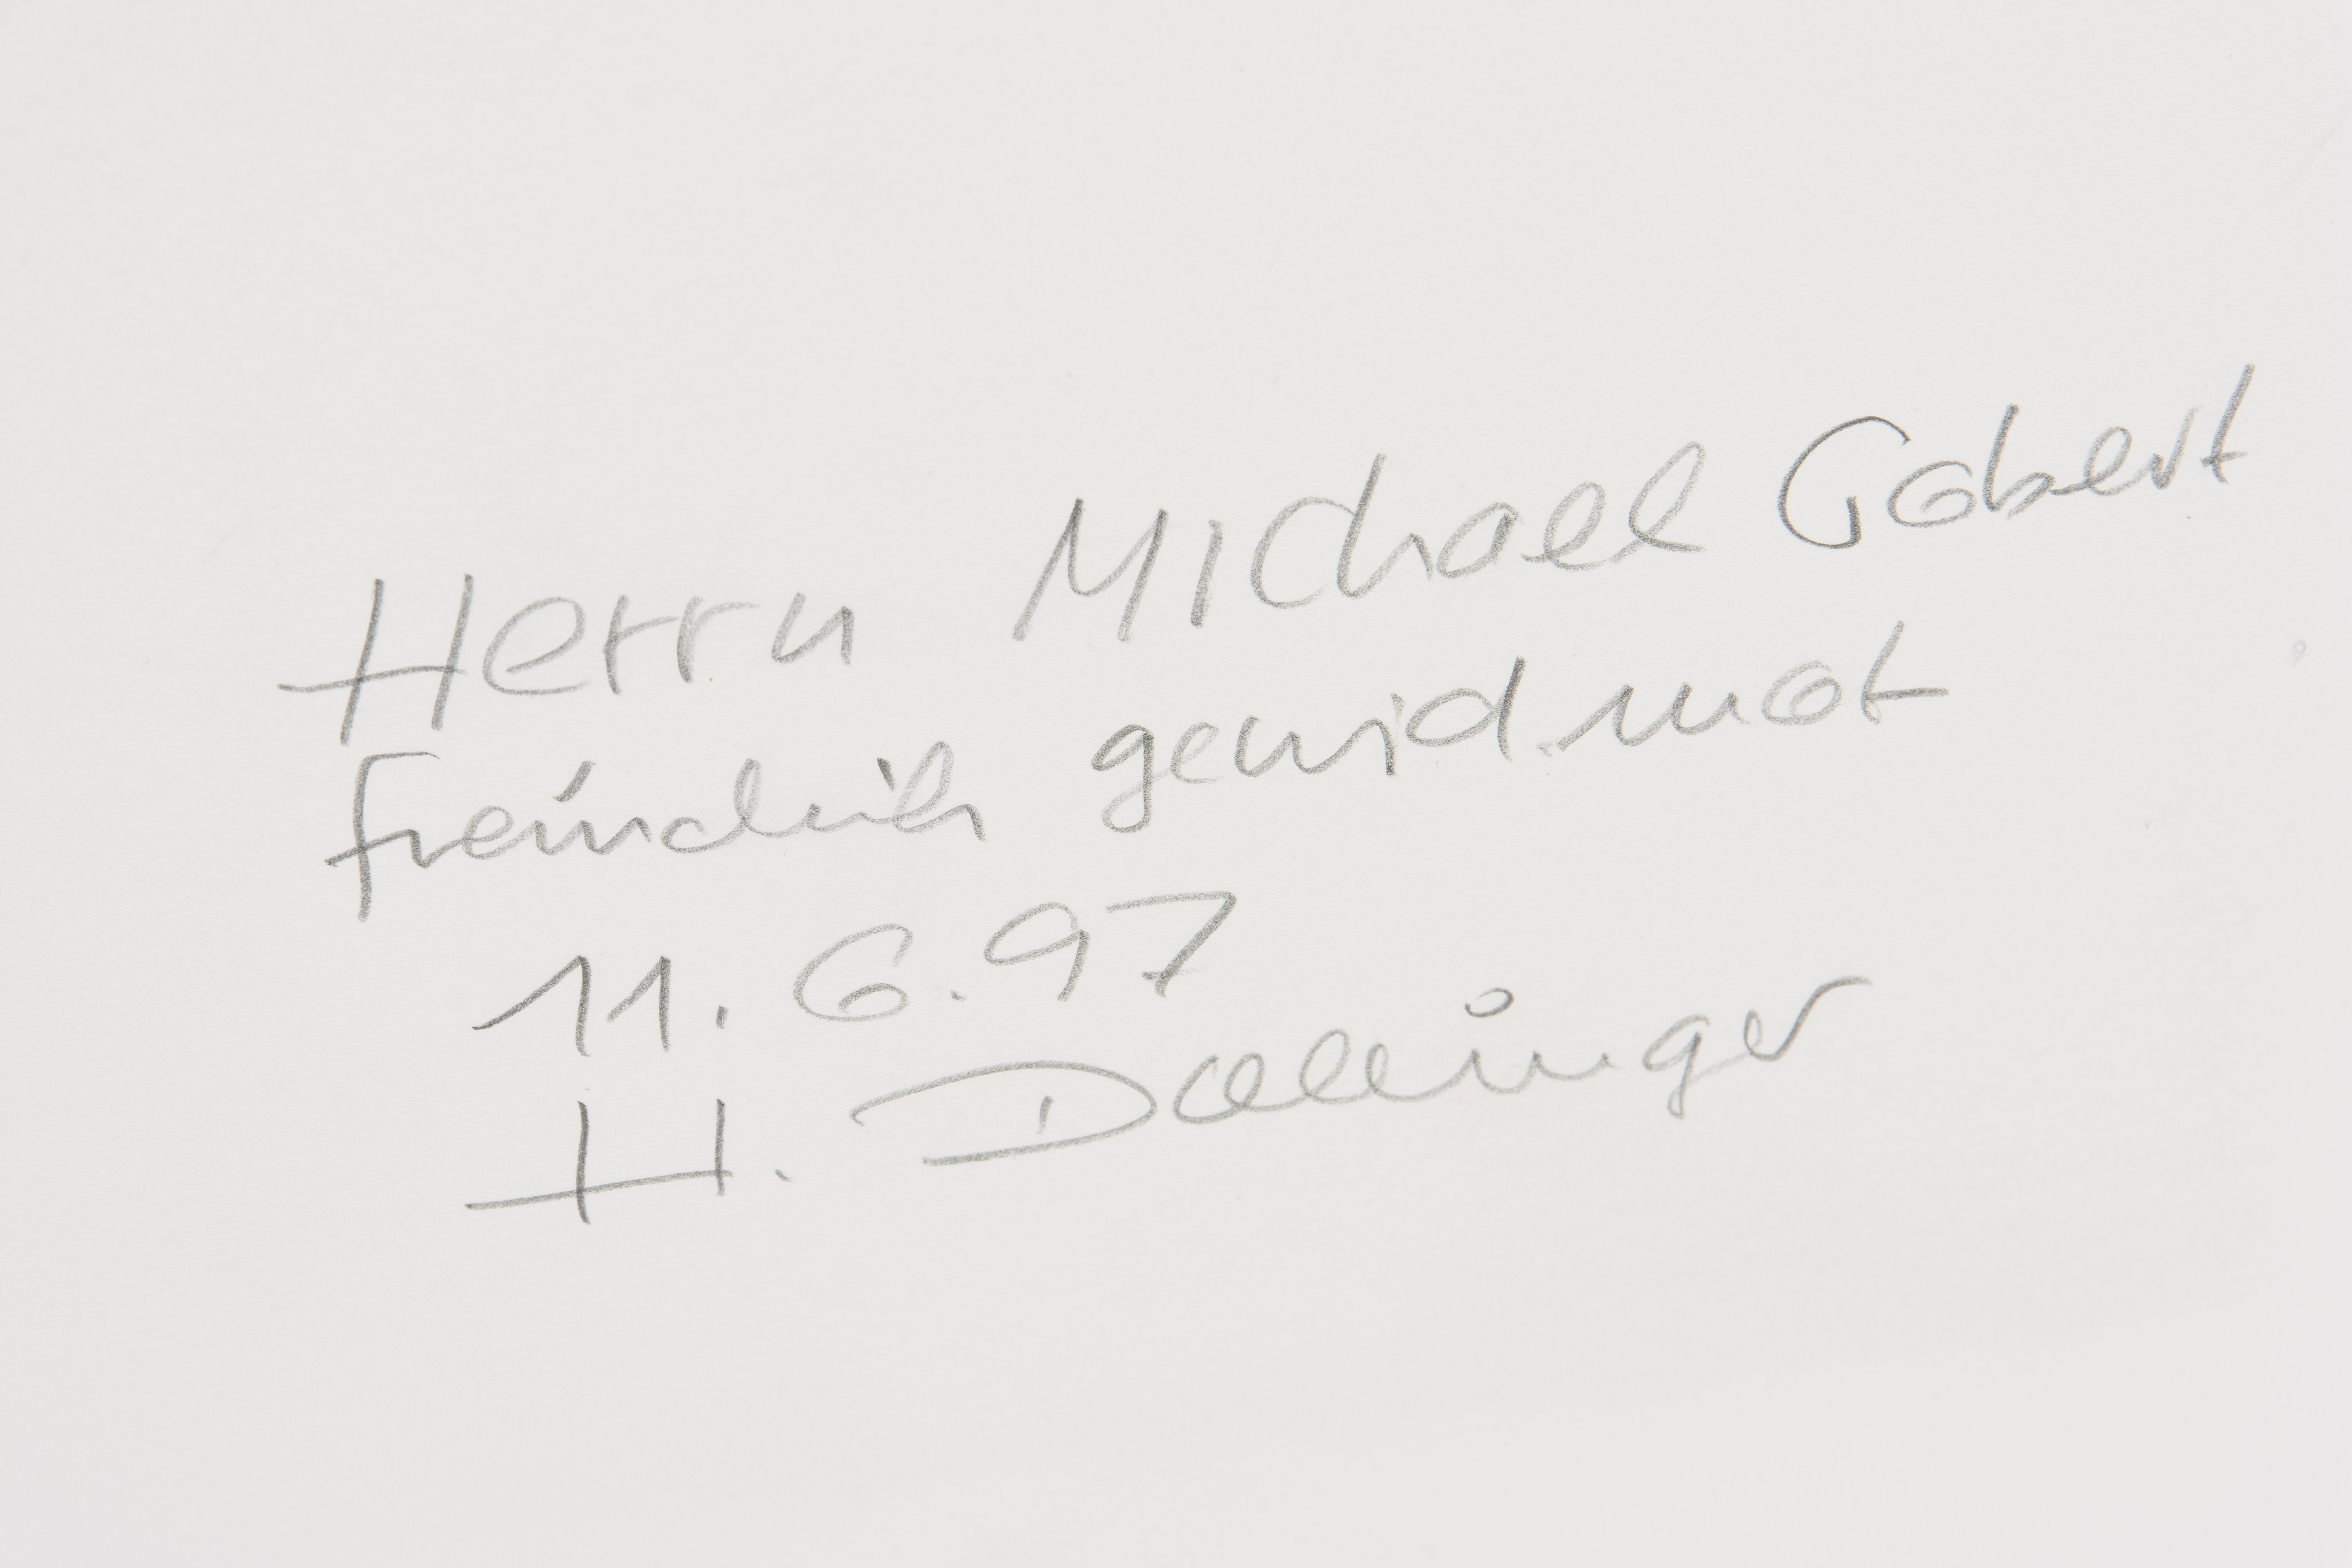 Herrn Michael Gobert
freundlich gewidmet
11.6.97
H. Dallinger